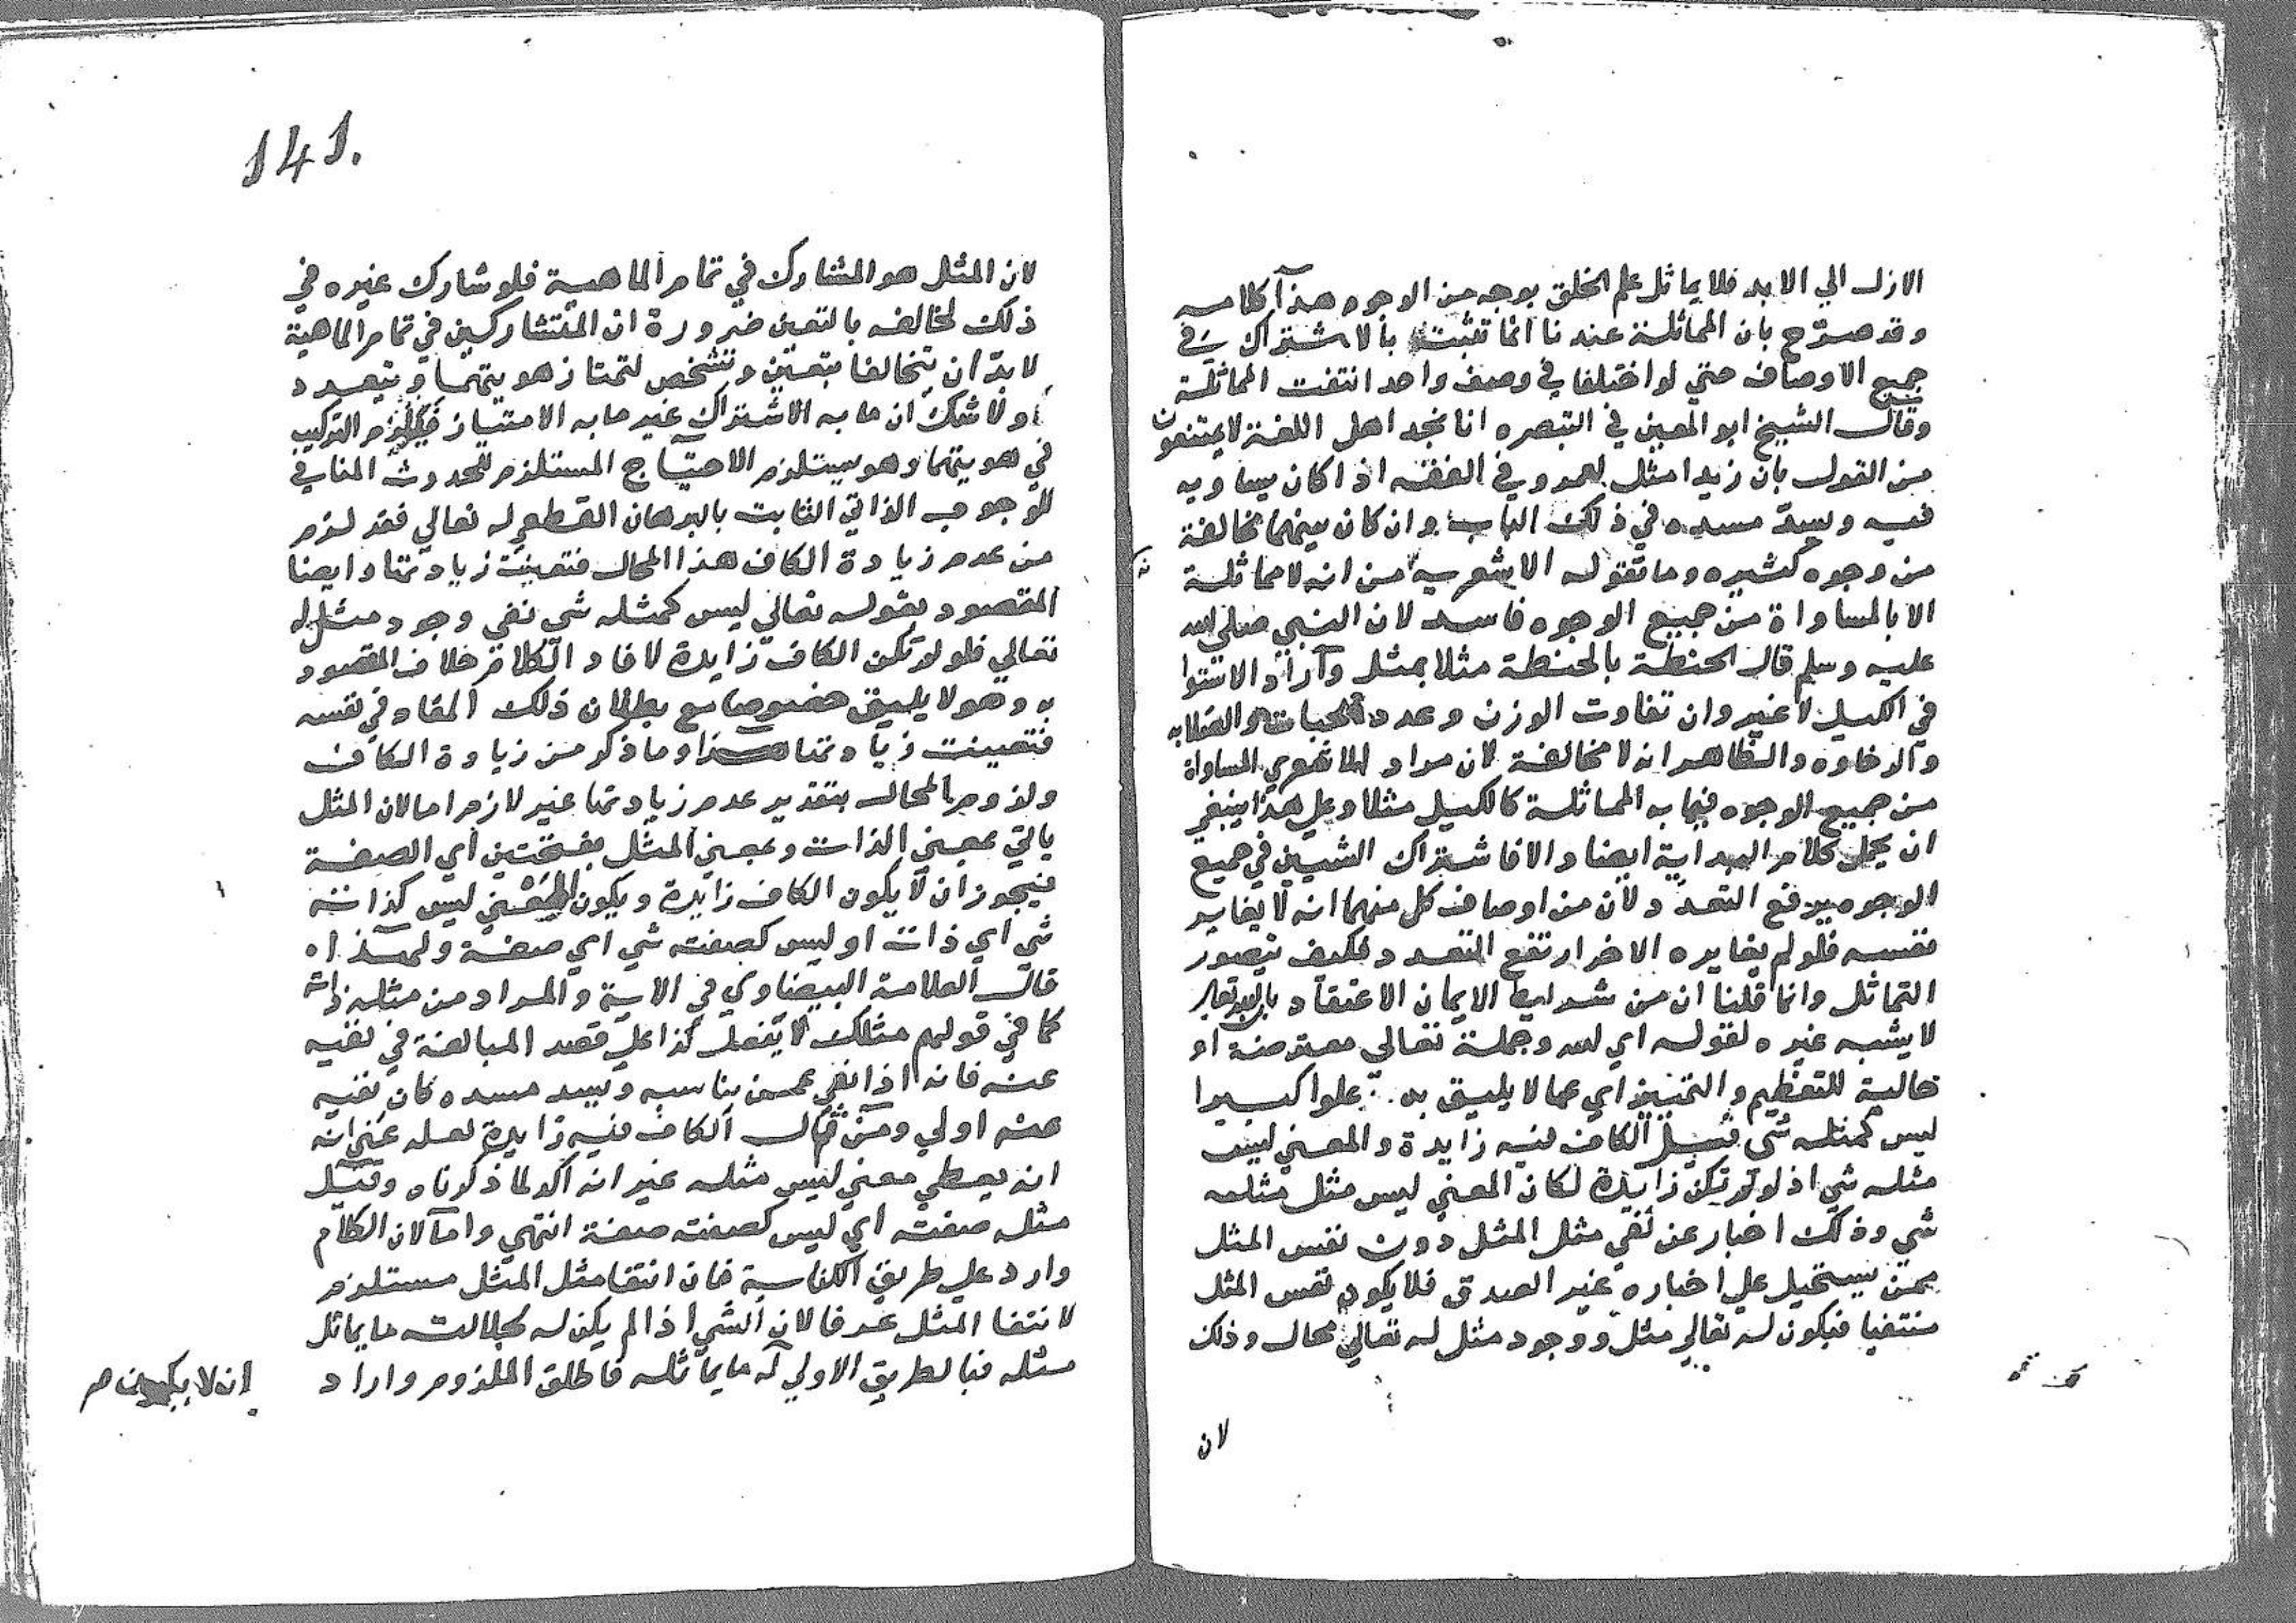 الازل الي الابد فلا يماثل علم الخلق بوجه من الوجوه هذا كلامه
وقد صرّح بان المماثلة عندنا انما تثبت بالاشتراك في
جميع الاوصاف حتي لو اختلفا في وصف واحد انتفت المماثلة
وقال الشيخ ابو المعين في التبصره انا نجد اهل اللغة لا يمتنعون
من القول بان زيدا مثل لعمرو في الفقه اذا كان يساويه
فيه ويسدّ مسده في ذلك الباب وان كان بينهما مخالفة
من وجوه كثيره وما تقوله الاشعرية من انه لا مماثلة
الا بالمساواة من جميع الوجوه فاسد لان النبي صلي الله
عليه وسلم قال الحنطة بالحنطة مثلا بمثل واراد الاستوا
في الكيل لا غير وان تفاوت الوزن وعدد الحبات والصلابه
والرخاوه والظاهر انه لا مخالفة لان مراد الاشعري المساواة
من جميع الوجوه فيما به المماثلة كالكيل مثلا وعلي هذا ينبغي
ان يحمل كلام البداية ايضا والا فاشتراك الشيين في جميع
الوجوه يدفع التعدد لان من اوصاف كل منهما انه لا يغاير
نفسه فلو لم يغايره الاخر ارتفع التعدد فكيف يتصور
التماثل وانما قلنا ان من شرايط الايمان الاعتقاد بان الله تعالي
لا يشبه غيره لقوله اي الله وجملة تعالي معترضة او
حالية للتعظيم والتنزيه اي عما لا يليق به علوا كبيرا
ليس كمثله شي قيل الكاف فيه زايدة والمعني ليس
مثله شي اذ لو لم تكن زايدة لكان المعني ليس مثل مثله
شي وذلك اخبار عن نفي مثل المثل دون نفس المثل
ممن يستحيل علي اخباره غير الصدق فلا يكون نفس المثل
منتفيا فيكون له تعالي مثل ووجود مثل له تعالي محال وذلك
لان
141.
لان المثل هو المشارك في تمام الماهية فلو شارك غيره في
ذلك لخالفه بالتعين ضرورة ان المتشاركين في تمام الماهية
لا بدّ ان يتخالفا بتعين وتشخص لتمتاز هويتهما ويتعدد
ولا شك ان ما به الاشتراك غير ما به الامتياز فيلزم التركيب
في هويتهما وهو يستلزم الاحتياج المستلزم للحدوث المنافي
للوجوب الذاتي الثابت بالبرهان القطعي له تعالي فقد لزم
من عدم زيادة الكاف هذا المحال فتعينت زيادتها وايضا
المقصود بقوله تعالي ليس كمثله شي نفي وجود مثل له
تعالي فلو لم تكن الكاف زايدة لافاد الكلام خلاف المقصود
به وهو لا يليق خصوصا مع بطلان ذلك المفاد في نفسه
فتعينت زيادتها هذا وما ذكر من زيادة الكاف
ولزوم المحال بتقدير عدم زيادتها غير لازم اما لان المثل
ياتي بمعني الذات وبمعني المثل بفتحتين اي الصفة
فيجوز ان لا يكون الكاف زايدة ويكون المعني ليس كذاته
شي اي ذات او ليس كصفته شي اي صفة ولهذا
قال العلامة البيضاوي في الاية والمراد من مثله ذاته
كما في قولهم مثلك لا يفعل كذا علي قصد المبالغة في نفيه
عنه فانه اذا نفي عمن يناسبه ويسد مسده كان نفيه
عنه اولي ومن قال الكاف فيه زايدة لعله عني انه
انه يعطي معني ليس مثله غير انه اكد لما ذكرناه وقيل
مثله صفته اي ليس كصفته صفة انتهي واما لان الكلام
وارد علي طريق الكناية فان انتفا مثل المثل مستلزم
لانتفا المثل عرفا لان الشي اذا لم يكن له لجلالته ما يماثل
مثله فبالطريق الاولي له ما يماثله فاطلق الملزوم واراد
ان لا يكون